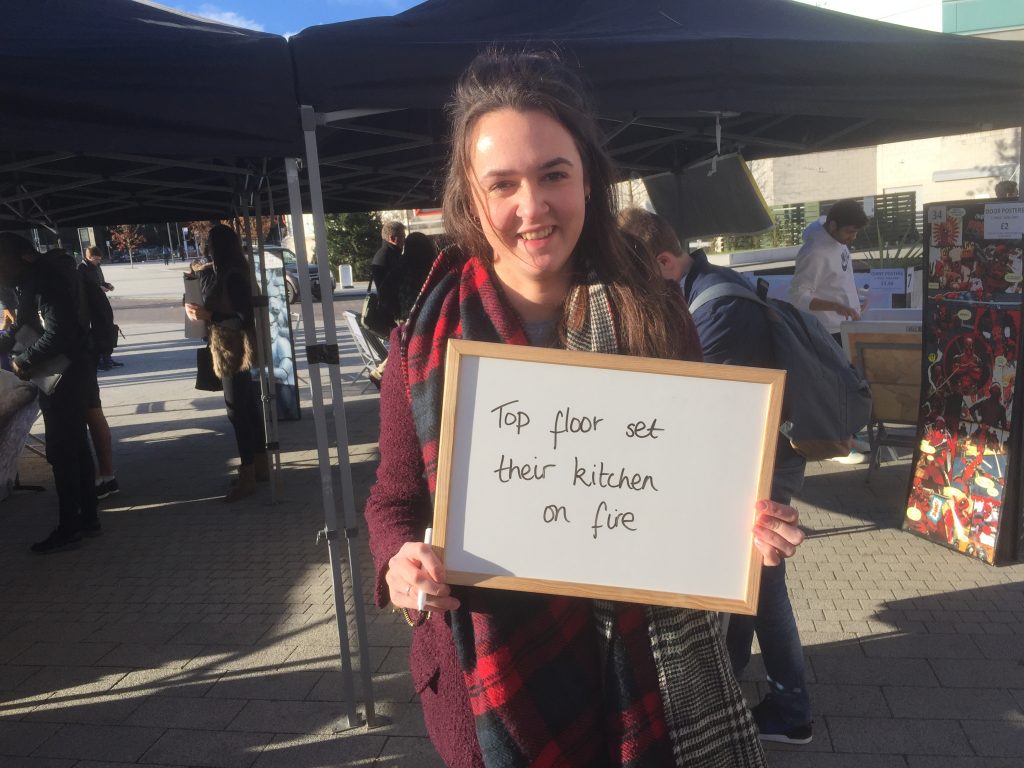 Top floor set
their kitchen
on fire
34
DOOR POSTERS
£2